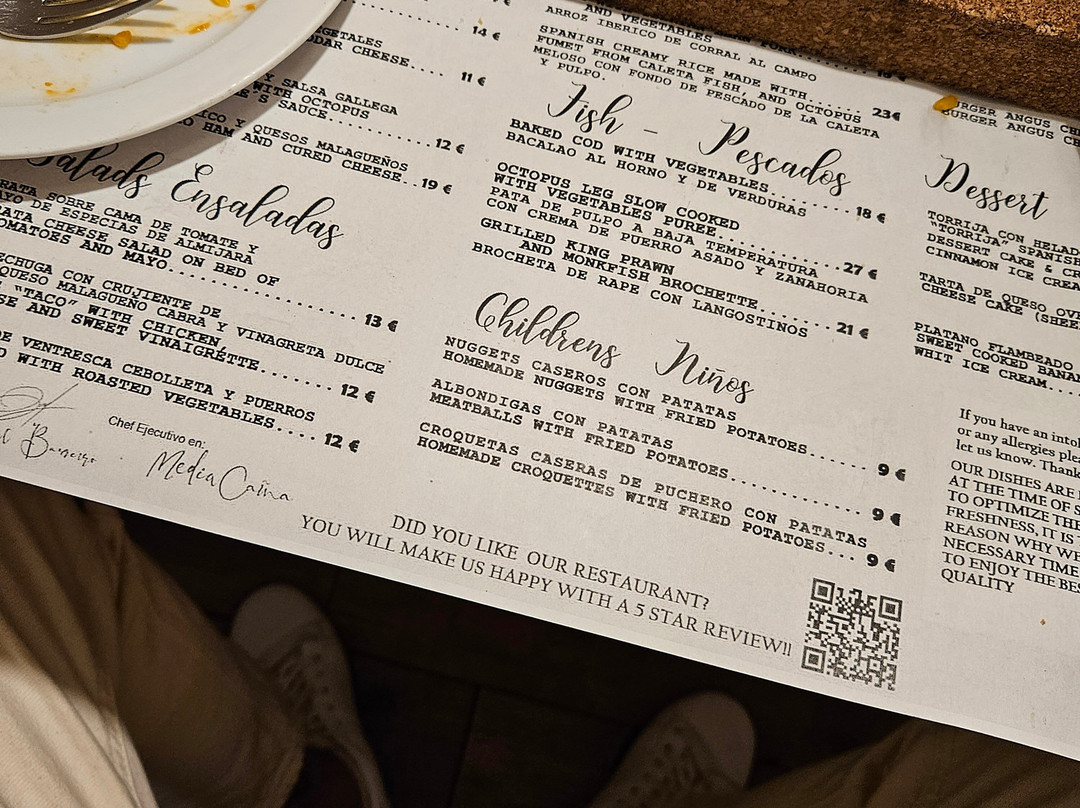 14 €
GETALES
DAR CHEESE.... 11 €
Y SALSA GALLEGA
WITH OCTOPUS
E'S SAUCE........... 12 €
ICO Y QUESOS MALAGUEÑOS
O HAM AND CURED CHEESE..19 €
Salads Ensaladas
RATA SOBRE CAMA DE TOMATE Y
AYO DE ESPECIAS DE ALMIJARA
RATA CHEESE SALAD ON BED OF
OMATOES AND MAYO.................. 13 €
ECHUGA CON CRUJIENTE DE
QUESO MALAGUEÑO CABRA Y VINAGRETA DULCE
"TACO" WITH CHICKEN,
SE AND SWEET VINAIGRÉTTE......... 12 €
DE VENTRESCA CEBOLLETA Y PUERROS
D WITH ROASTED VEGETABLES..... 12 €
Chef Ejecutivo en:
Media Caña
AND VEGETABLES
ARROZ IBERICO DE CORRAL AL CAMPO
SPANISH CREAMY RICE MADE WITH
FUMET FROM CALETA FISH, AND OCTOPUS....... 23€
MELOSO CON FONDO DE PESCADO DE LA CALETA
Y PULPO.
Fish - Pescados
BAKED COD WITH VEGETABLES............. 18 €
BACALAO AL HORNO Y DE VERDURAS
OCTOPUS LEG SLOW COOKED
WITH VEGETABLES PUREE................. 27 €
PATA DE PULPO A BAJA TEMPERATURA
CON CREMA DE PUERRO ASADO Y ZANAHORIA
GRILLED KING PRAWN
AND MONKFISH BROCHETTE........... 21 €
BROCHETA DE RAPE CON LANGOSTINOS
Childrens Niños
NUGGETS CASEROS CON PATATAS
HOMEMADE NUGGETS WITH FRIED POTATOES....... 9 €
ALBONDIGAS CON PATATAS
MEATBALLS WITH FRIED POTATOES............... 9 €
CROQUETAS CASERAS DE PUCHERO CON PATATAS
HOMEMADE CROQUETTES WITH FRIED POTATOES... 9 €
BURGER ANGUS CH
BURGER ANGUS CH
Dessert
TORRIJA CON HELAD
"TORRIJA" SPANIS
DESSERT CAKE & CR
CINNAMON ICE CREA
TARTA DE QUESO OV
CHEESE CAKE (SHEE
PLATANO FLAMBEADO
SWEET COOKED BANA
WHIT ICE CREAM....
If you have an intol
or any allergies plea
let us know. Thank
OUR DISHES ARE
AT THE TIME OF S
TO OPTIMIZE THE
FRESHNESS, IT IS
REASON WHY WE
NECESSARY TIME
TO ENJOY THE BES
QUALITY
DID YOU LIKE OUR RESTAURANT?
YOU WILL MAKE US HAPPY WITH A 5 STAR REVIEW!!